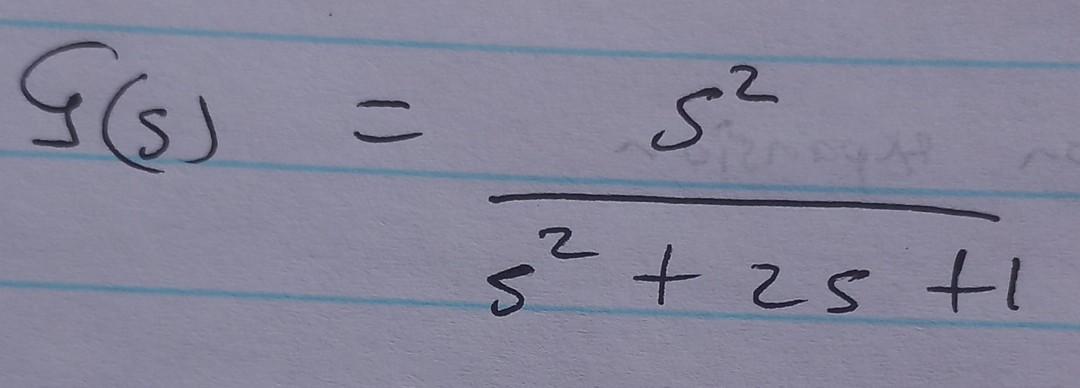 G(s) = s²
s² + 2s + 1